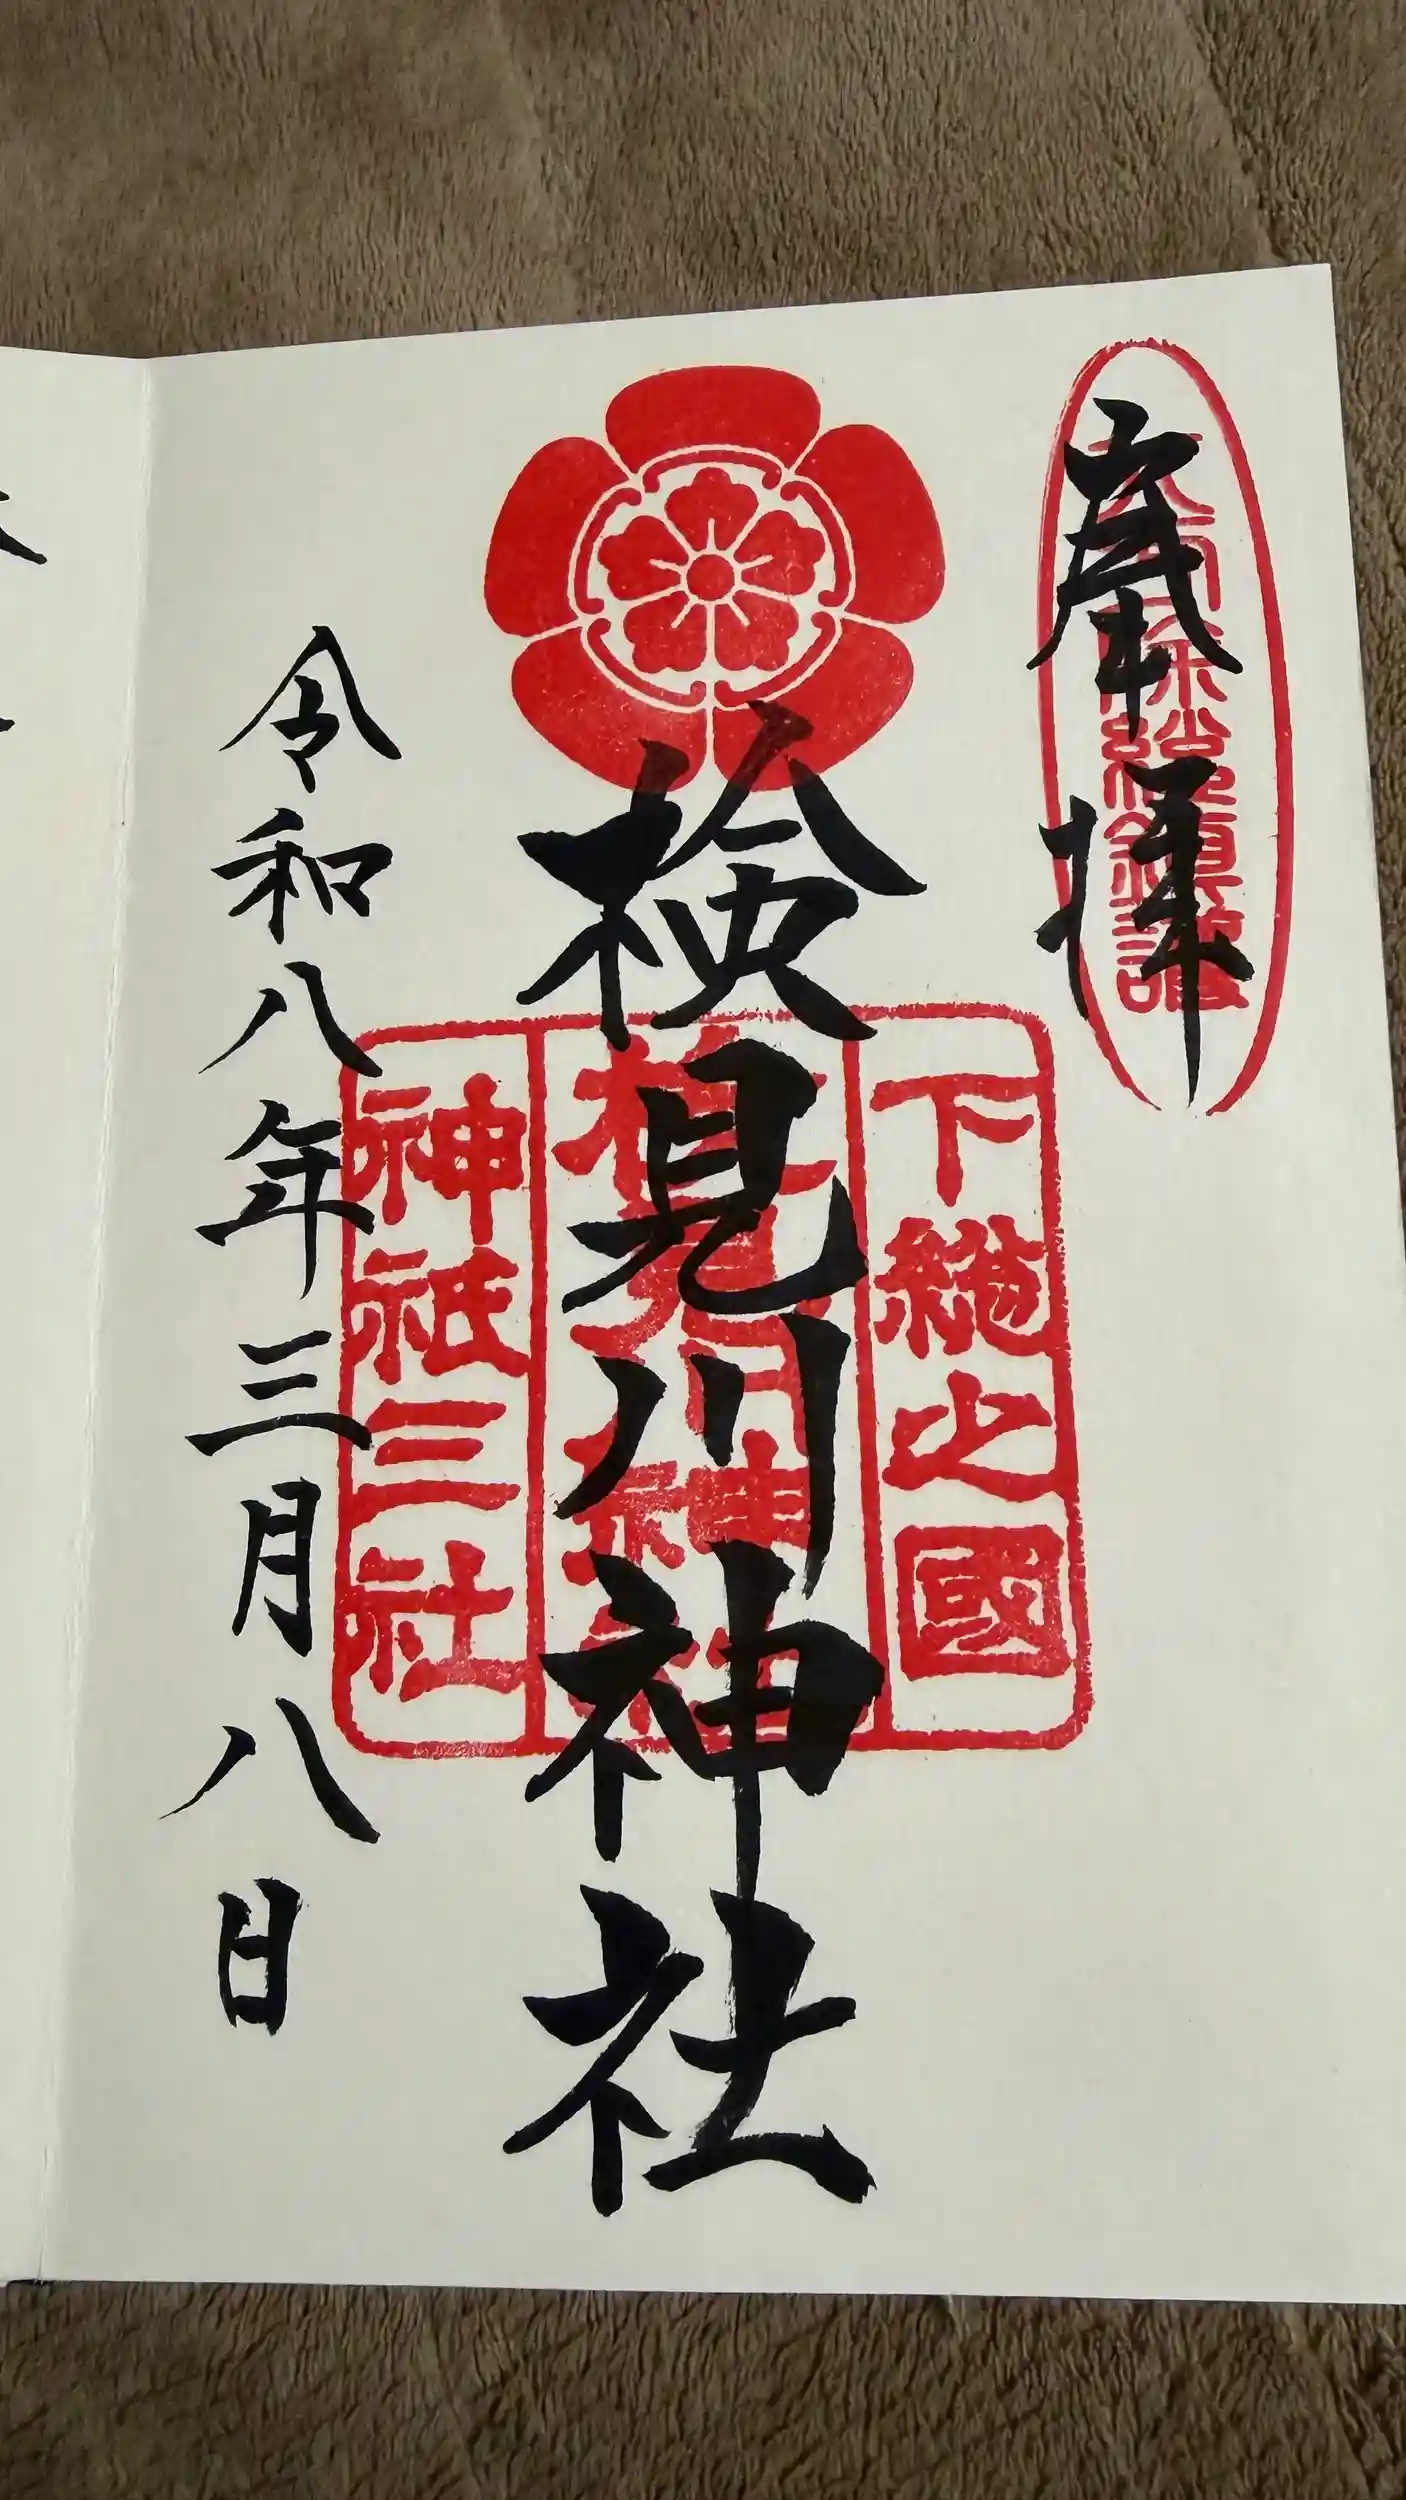 奉拝
八方除総鎮護
下総之國
検見川神社
検見川神社
神祇三社
令和八年三月八日